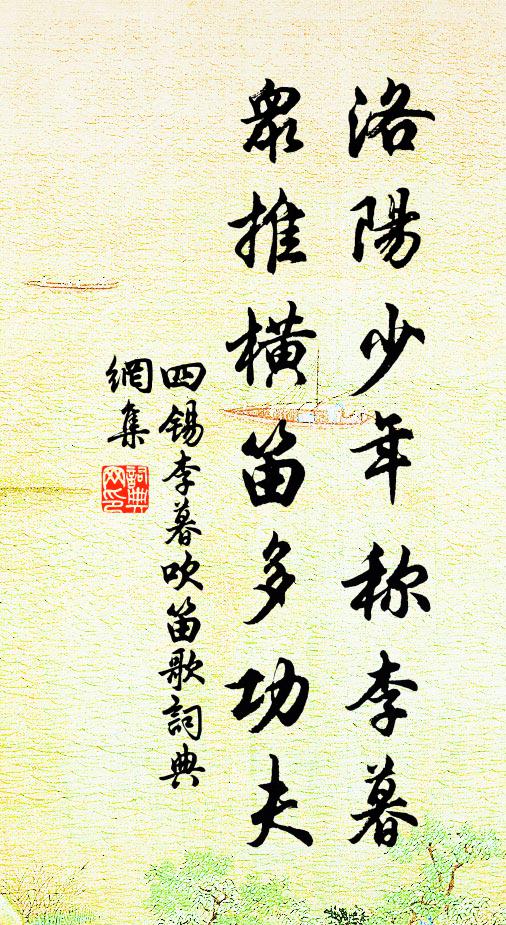 洛陽少年称李暮
眾推橫笛多功夫
四錫李暮吹笛歌詞典
網集
詞典
网印